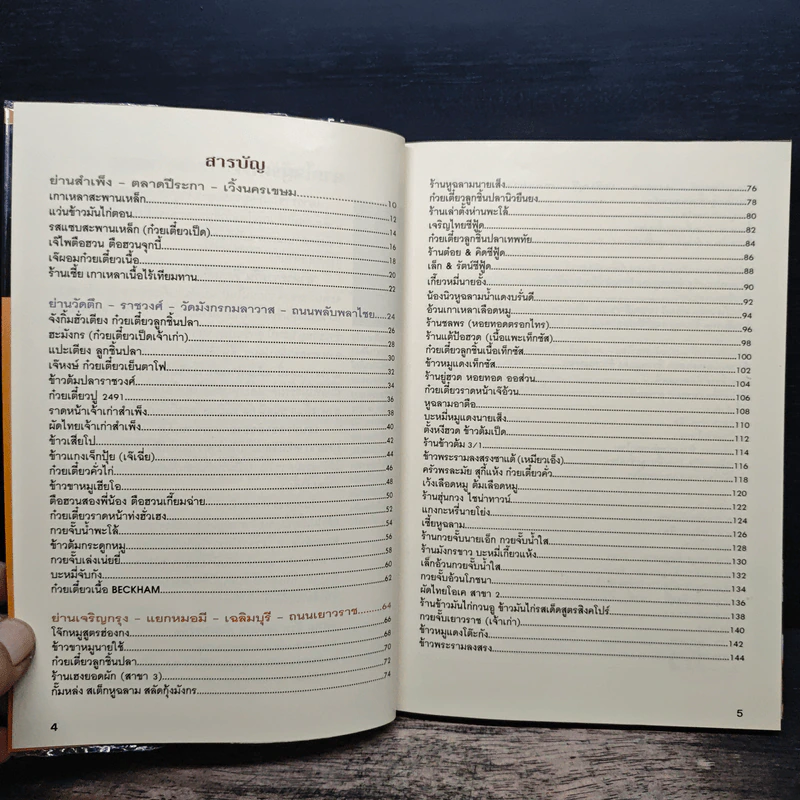 สารบัญ
ย่านสำเพ็ง – ตลาดปีระกา – เวิ้งนครเขษม 10
เกาเหลาสะพานเหล็ก 12
แว่นข้าวมันไก่ตอน 14
รสแซบสะพานเหล็ก (ก๋วยเตี๋ยวเป็ด) 16
เจ๊โพตือฮวน ตือฮวนจุกบี้ 18
เจ๊ผอมก๋วยเตี๋ยวเนื้อ 20
ร้านเซี้ย เกาเหลาเนื้อไร้เทียมทาน 22
ย่านวัดตึก – ราชวงศ์ – วัดมังกรกมลาวาส – ถนนพลับพลาไชย 24
จังกิ้มฮั่วเตียง ก๋วยเตี๋ยวลูกชิ้นปลา 26
ฮะมังกร (ก๋วยเตี๋ยวเป็ดเจ้าเก่า) 28
แปะเตียง ลูกชิ้นปลา 30
เจ๊หงษ์ ก๋วยเตี๋ยวเย็นตาโฟ 32
ข้าวต้มปลาราชวงศ์ 34
ก๋วยเตี๋ยวปู 2491 36
ราดหน้าเจ้าเก่าสำเพ็ง 38
ผัดไทยเจ้าเก่าสำเพ็ง 40
ข้าวเสียโป 42
ข้าวแกงเจ็กปุ้ย (เจ๊เฉี่ย) 44
ก๋วยเตี๋ยวคั่วไก่ 46
ข้าวขาหมูเฮียโอ 48
ตือฮวนสองพี่น้อง ตือฮวนเกี้ยมฉ่าย 50
ก๋วยเตี๋ยวราดหน้าท่งฮั่วเฮง 52
กวยจั๊บน้ำพะโล้ 54
ข้าวต้มกระดูกหมู 56
กวยจั๊บเล่งเน่ยยี่ 58
บะหมี่จับกัง 60
ก๋วยเตี๋ยวเนื้อ BECKHAM 62
ย่านเจริญกรุง – แยกหมอมี – เฉลิมบุรี – ถนนเยาวราช 64
โจ๊กหมูสูตรฮ่องกง 66
ข้าวขาหมูนายใช้ 68
ก๋วยเตี๋ยวลูกชิ้นปลา 70
ร้านเฮงยอดผัก (สาขา 3) 72
กั๊มหล่ง สเต็กหูฉลาม สลัดกุ้งมังกร 74
4
ร้านหูฉลามนายเส็ง 76
ก๋วยเตี๋ยวลูกชิ้นปลานิวยืนยง 78
ร้านเล่าตั้งห่านพะโล้ 80
เจริญไทยซีฟู้ด 82
ก๋วยเตี๋ยวลูกชิ้นปลาเทพทัย 84
ร้านต่อย & คิดซีฟู้ด 86
เล็ก & รัตน์ซีฟู้ด 88
เกี้ยวหมี่นายอั้ง 90
น้องนิวหูฉลามน้ำแดงบรั่นดี 92
อ้วนเกาเหลาเลือดหมู 94
ร้านชลพร (หอยทอดตรอกไทร) 96
ร้านแต้ป้อฮวด (เนื้อแพะเท็กซัส) 98
ก๋วยเตี๋ยวลูกชิ้นเนื้อเท็กซัส 100
ข้าวหมูแดงเท็กซัส 102
ร้านยู่ฮวด หอยทอด ออส่วน 104
ก๋วยเตี๋ยวราดหน้าเจ๊อ้วน 106
หูฉลามอาตือ 108
บะหมี่หมูแดงนายเส็ง 110
ตั้งหงีฮวด ข้าวต้มเป็ด 112
ร้านข้าวต้ม 3/1 114
ข้าวพระรามลงสรงซาแต้ (เหมียวเอ็ง) 116
ครัวพรละมัย สุกี้แห้ง ก๋วยเตี๋ยวคั่ว 118
เว้งเลือดหมู ต้มเลือดหมู 120
ร้านฮุ่นกวง ไชน่าทาวน์ 122
แกงกะหรี่นายโย่ง 124
เซี้ยหูฉลาม 126
ร้านกวยจั๊บนายเอ็ก กวยจั๊บน้ำใส 128
ร้านมังกรขาว บะหมี่เกี๊ยวแห้ง 130
เล็กอ้วนกวยจั๊บน้ำใส 132
กวยจั๊บอ้วนโภชนา 134
ผัดไทยโอเค สาขา 2 136
ร้านข้าวมันไก่กวนอู ข้าวมันไก่รสเด็ดสูตรสิงคโปร์ 138
กวยจั๊บเยาวราช (เจ้าเก่า) 140
ข้าวหมูแดงโต๊ะกัง 142
ข้าวพระรามลงสรง 144
5